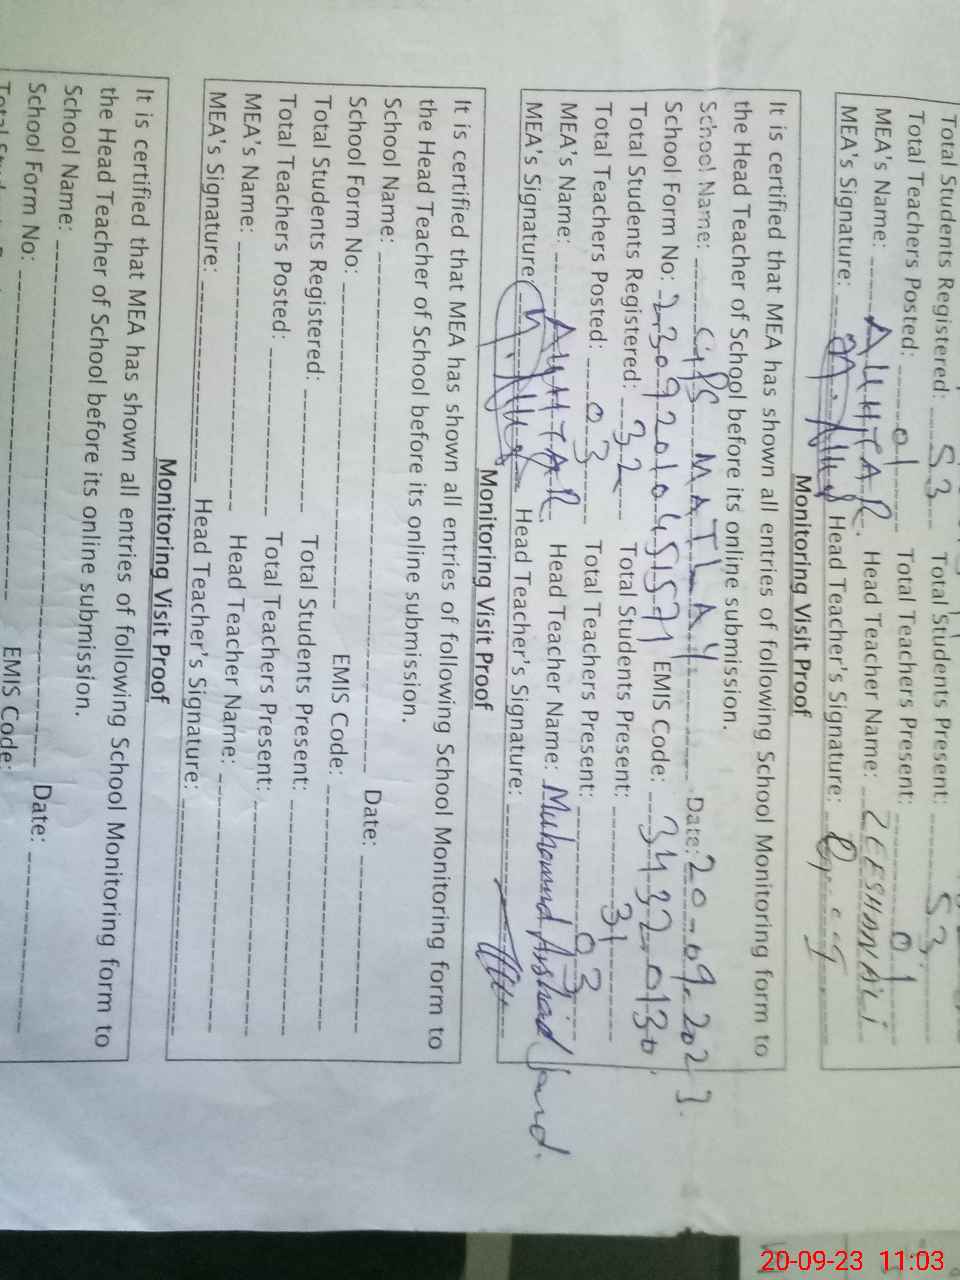 Total Students Registered: 53 Total Students Present: 53
Total Teachers Posted: 01 Total Teachers Present: 01
MEA's Name: AUHTAR. Head Teacher Name: ZEESHAN ALI
MEA's Signature: Head Teacher's Signature:
Monitoring Visit Proof
It is certified that MEA has shown all entries of following School Monitoring form to
the Head Teacher of School before its online submission.
School Name: GPS MATLAY Date: 20-09-2023.
School Form No: 23092010451571 EMIS Code: 34320130
Total Students Registered: 32 Total Students Present: 31
Total Teachers Posted: 03 Total Teachers Present: 03
MEA's Name: AUHTAR. Head Teacher Name: Muhammad Arshad
MEA's Signature: Head Teacher's Signature:
Monitoring Visit Proof
It is certified that MEA has shown all entries of following School Monitoring form to
the Head Teacher of School before its online submission.
School Name: Date:
School Form No: EMIS Code:
Total Students Registered: Total Students Present:
Total Teachers Posted: Total Teachers Present:
MEA's Name: Head Teacher Name:
MEA's Signature: Head Teacher's Signature:
Monitoring Visit Proof
It is certified that MEA has shown all entries of following School Monitoring form to
the Head Teacher of School before its online submission.
School Name: Date:
School Form No: EMIS Code:
20-09-23 11:03